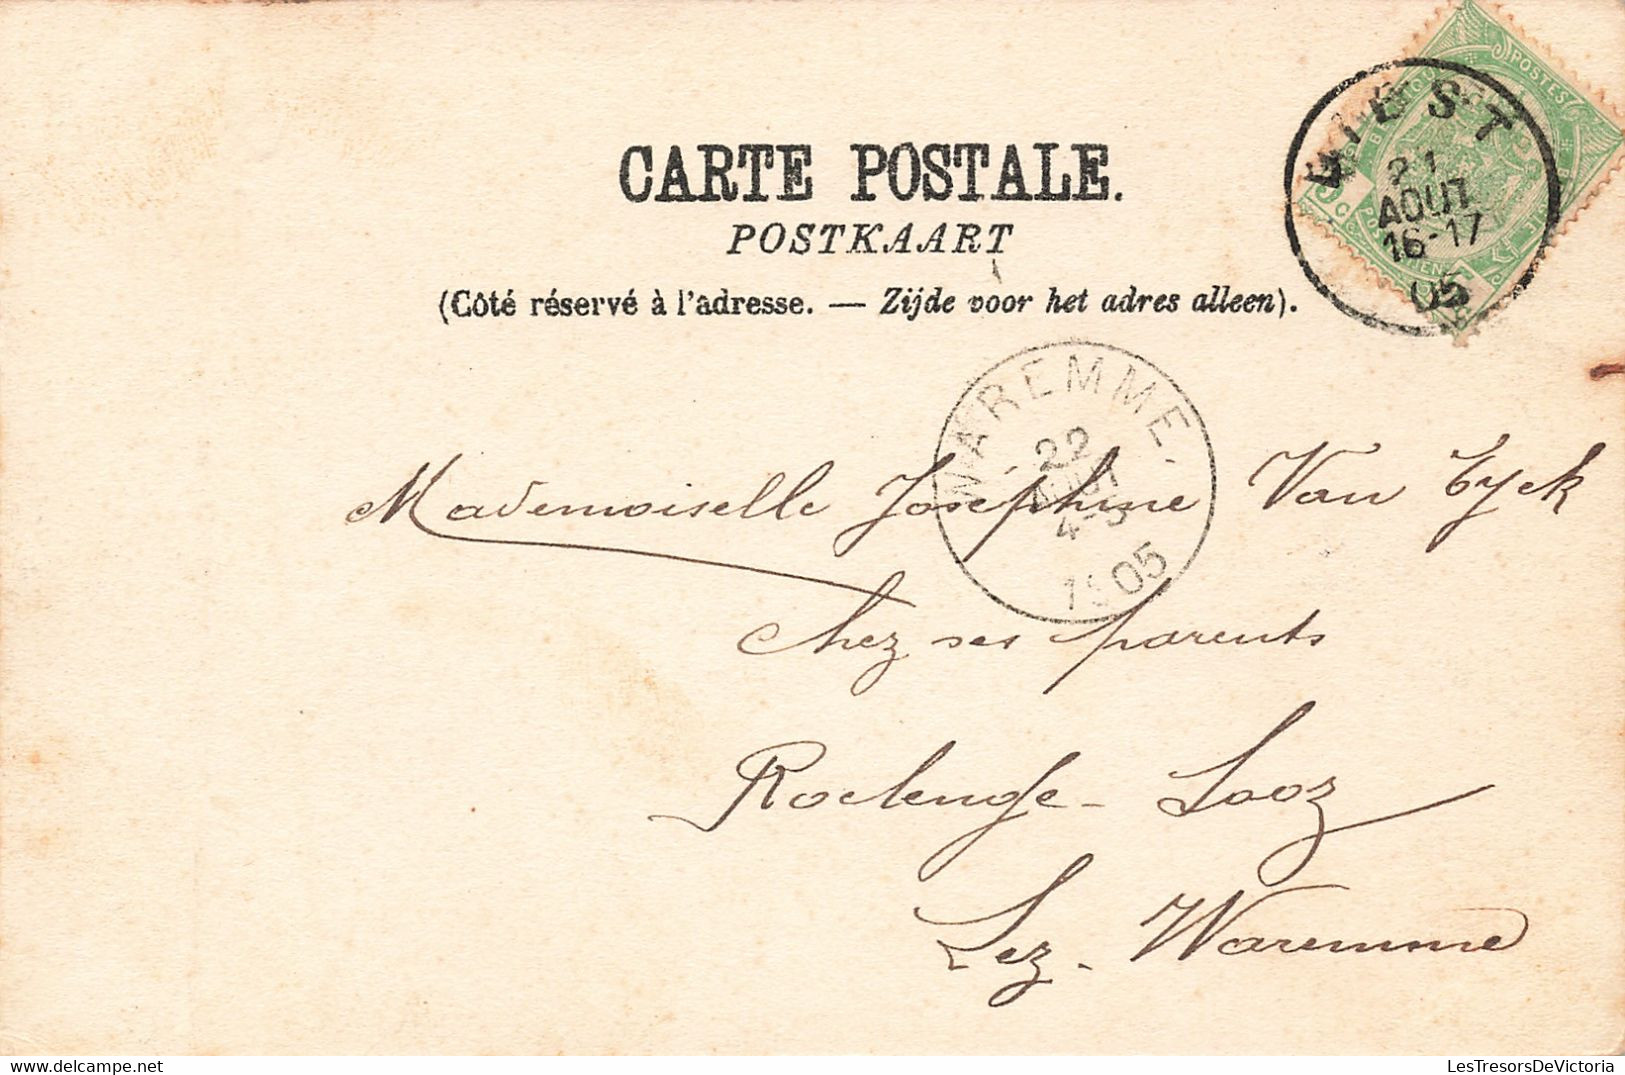 CARTE POSTALE.
POSTKAART
(Côté réservé à l'adresse. — Zijde voor het adres alleen).
POSTES
DIEST
21
AOUT
16-17
05
WAREMME.
22
AOUT
4-5
1905
Mademoiselle Joséphine Van Eyck
Chez ses parents
Roclenge - Looz
Lez - Waremme
LesTresorsDeVictoria